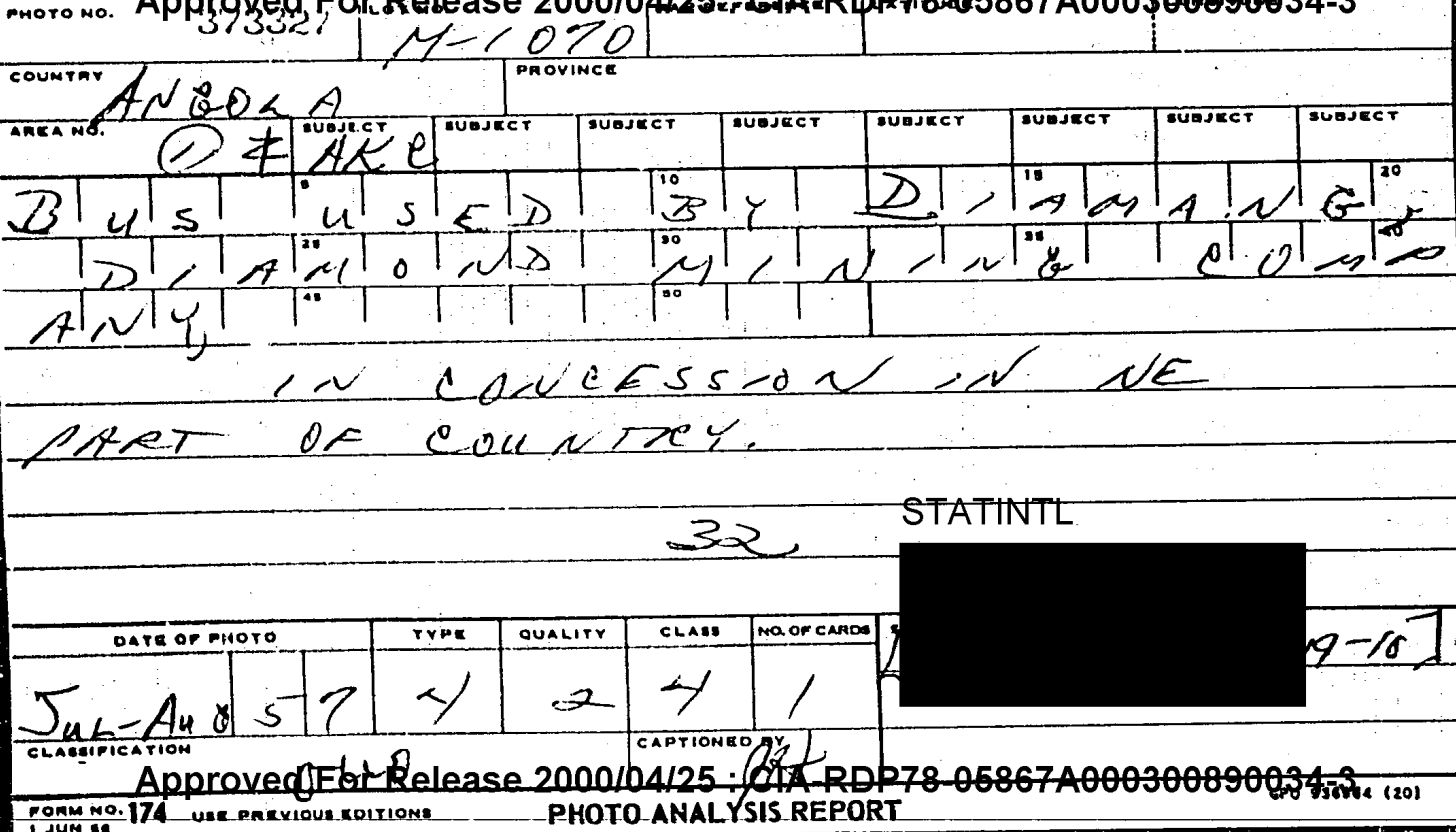 Approved For Release 2000/04/25 : CIA-RDP78-05867A000300890034-3
PHOTO NO. 373321 M-1070
COUNTRY ANGOLA PROVINCE
AREA NO. SUBJECT SUBJECT SUBJECT SUBJECT SUBJECT SUBJECT SUBJECT SUBJECT
① & AKC
5 10 15 20
BUS USED BY DIAMANG,
25 30 35 40
DIAMOND MINING COMP
45 50
ANY,
IN CONCESSION IN NE
PART OF COUNTRY.
STATINTL
32
DATE OF PHOTO TYPE QUALITY CLASS NO. OF CARDS
9-10]
JUL-AUG 57 4 2 4 1
CLASSIFICATION CAPTIONED BY
Approved For Release 2000/04/25 : CIA-RDP78-05867A000300890034-3
FORM NO. 174 USE PREVIOUS EDITIONS PHOTO ANALYSIS REPORT (20)
1 JUN 56